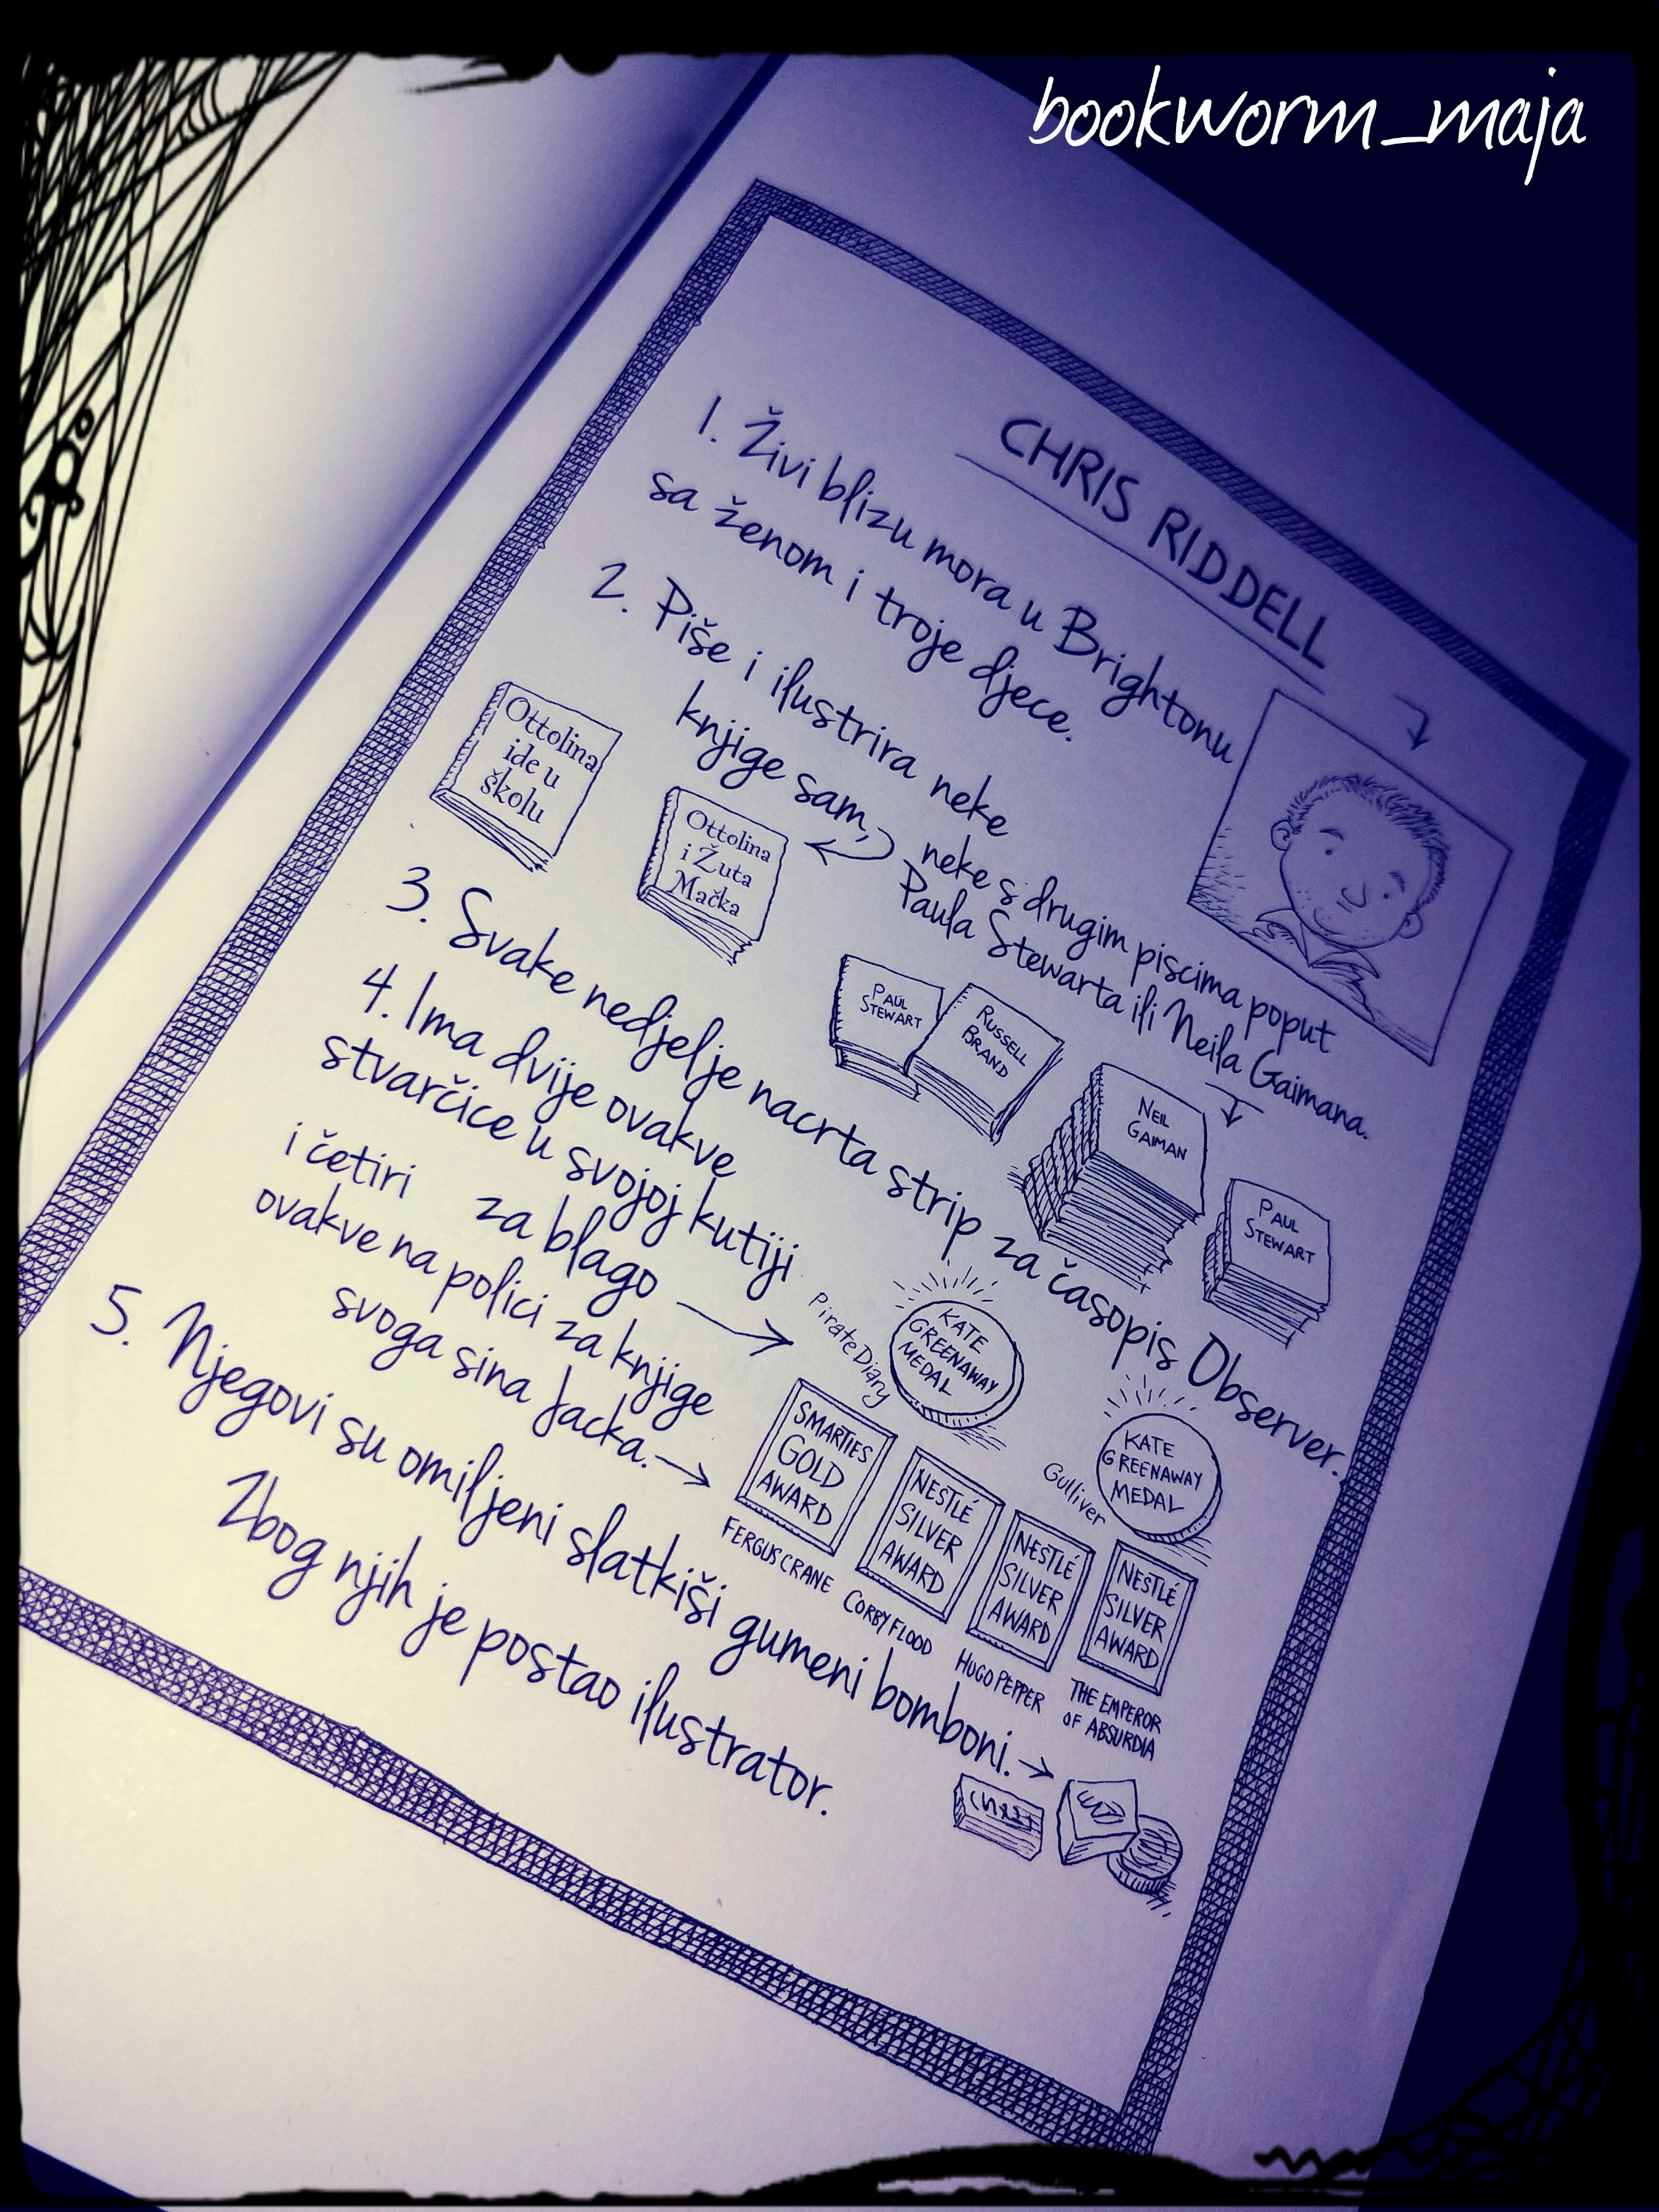 bookworm_maja
CHRIS RIDDELL
1. Živi blizu mora u Brightonu
sa ženom i troje djece.
2. Piše i ilustrira neke
knjige sam,
neke s drugim piscima poput
Paula Stewarta ili Neila Gaimana.
Ottolina
ide u
školu
Ottolina
i Žuta
Mačka
PAUL
STEWART
RUSSELL
BRAND
NEIL
GAIMAN
PAUL
STEWART
3. Svake nedjelje nacrta strip za časopis Observer.
4. Ima dvije ovakve
stvarčice u svojoj kutiji
za blago
Pirate Diary
KATE
GREENAWAY
MEDAL
Gulliver
KATE
GREENAWAY
MEDAL
i četiri
ovakve na polici za knjige
svoga sina Jacka.
SMARTIES
GOLD
AWARD
FERGUS CRANE
NESTLÉ
SILVER
AWARD
CORBY FLOOD
NESTLÉ
SILVER
AWARD
HUGO PEPPER
NESTLÉ
SILVER
AWARD
THE EMPEROR
OF ABSURDIA
5. Njegovi su omiljeni slatkiši gumeni bomboni.
Zbog njih je postao ilustrator.